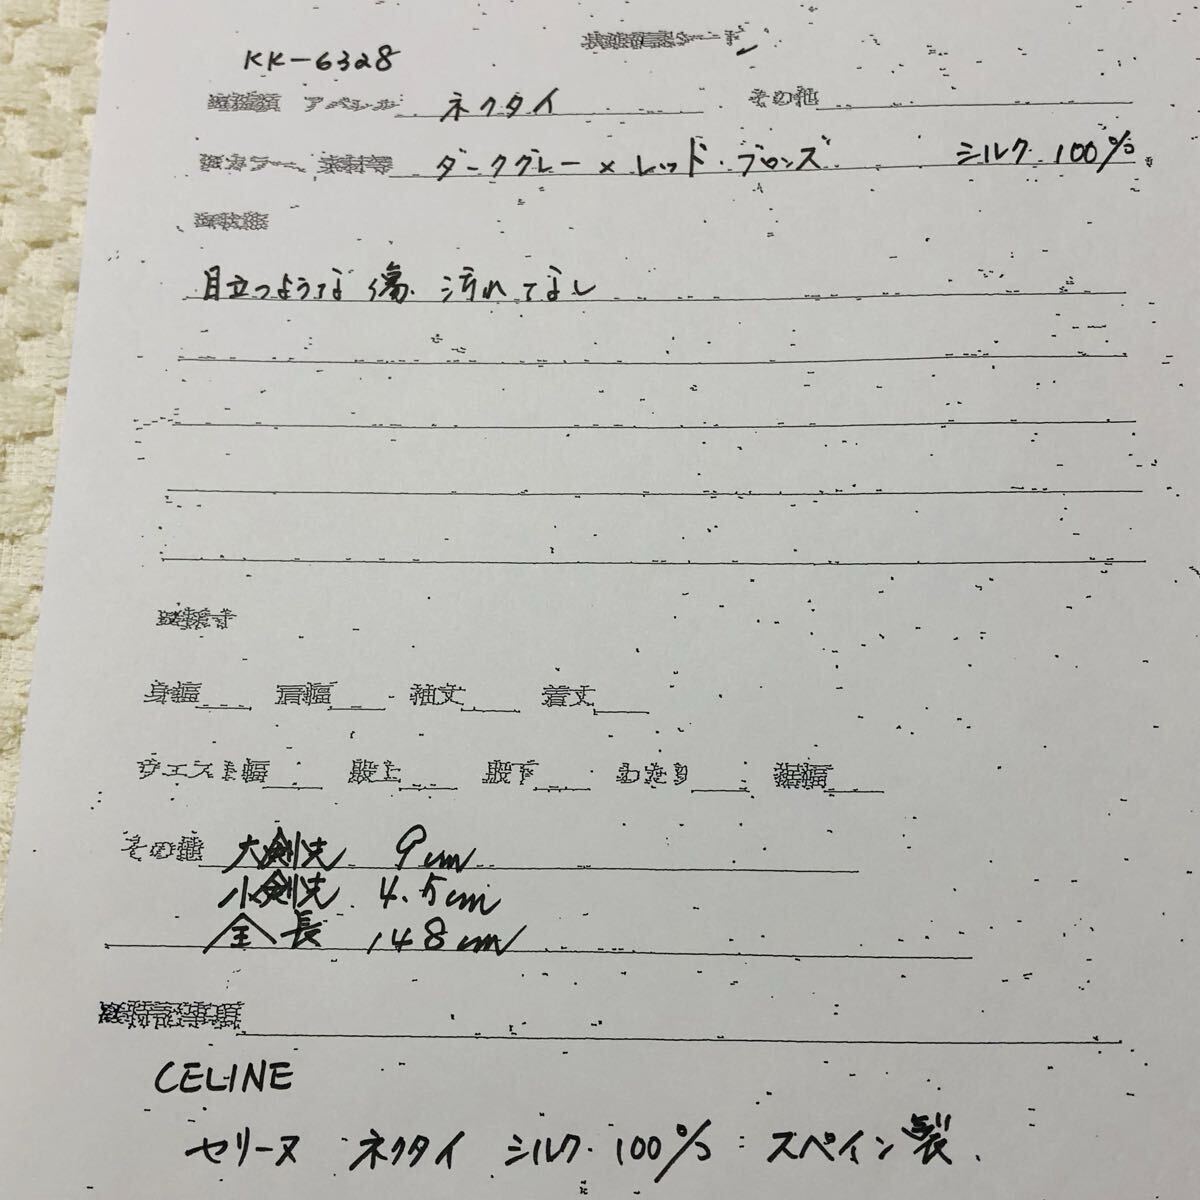 状態確認シート
KK-6328
アパレル ネクタイ その他
カラー、素材等 ダークグレー×レッド・ブロンズ シルク 100%
目立つような傷、汚れてなし
身幅 肩幅 袖丈 着丈
ウエスト幅 股上 股下 わたり 裾幅
その他 大剣先 9cm
小剣先 4.5cm
全長 148cm
※特記事項
CELINE
セリーヌ ネクタイ シルク 100% スペイン製